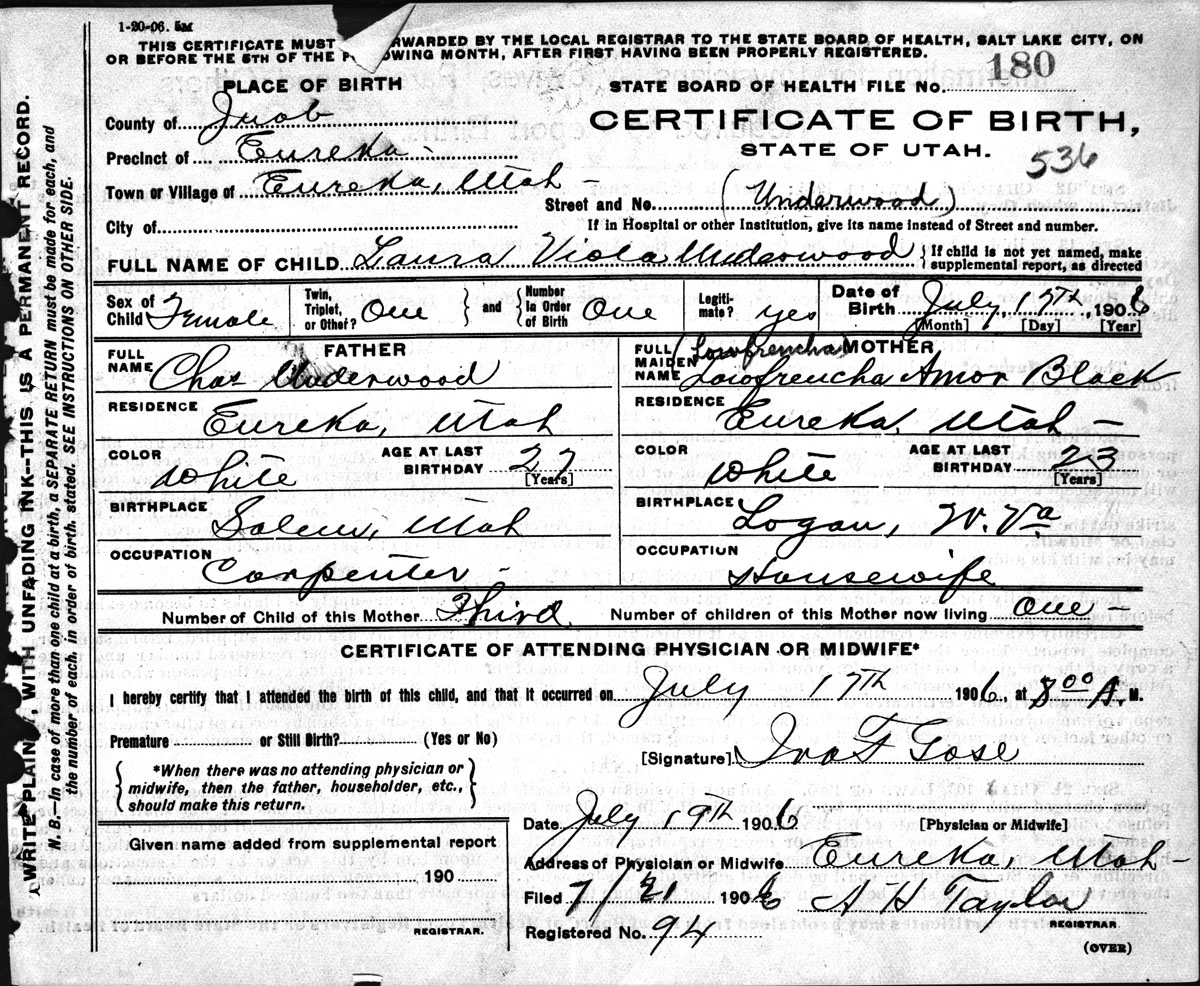 1-20-06. 5M
THIS CERTIFICATE MUST FORWARDED BY THE LOCAL REGISTRAR TO THE STATE BOARD OF HEALTH, SALT LAKE CITY, ON
OR BEFORE THE 5TH OF THE FOLLOWING MONTH, AFTER FIRST HAVING BEEN PROPERLY REGISTERED.
180
PLACE OF BIRTH
STATE BOARD OF HEALTH FILE No.
County of Juab
CERTIFICATE OF BIRTH,
Precinct of Eureka -
STATE OF UTAH.
536
Town or Village of Eureka, Utah -
Street and No. (Underwood)
City of
If in Hospital or other Institution, give its name instead of Street and number.
FULL NAME OF CHILD Laura Viola Underwood { If child is not yet named, make supplemental report, as directed
Sex of Child Female Twin, Triplet, or Other? One } and { Number in Order of Birth One Legiti- mate? yes Date of Birth July, 17th, 1906
[Month] [Day] [Year]
FATHER
MOTHER
FULL NAME Chas Underwood
FULL MAIDEN NAME (Lowfrencha Lowfrencha Amor Black
RESIDENCE Eureka, Utah
RESIDENCE Eureka, Utah -
COLOR White AGE AT LAST BIRTHDAY 27 [Years]
COLOR White AGE AT LAST BIRTHDAY 23 [Years]
BIRTHPLACE Salem, Utah
BIRTHPLACE Logan, W. Va
OCCUPATION Carpenter -
OCCUPATION Housewife
Number of Child of this Mother Third Number of children of this Mother now living One -
CERTIFICATE OF ATTENDING PHYSICIAN OR MIDWIFE*
I hereby certify that I attended the birth of this child, and that it occurred on July 17th 1906, at 8 00 A. M.
Premature or Still Birth? (Yes or No)
[Signature] Ira F Gose
*When there was no attending physician or
midwife, then the father, householder, etc.,
should make this return.
Date July 19th 1906 [Physician or Midwife]
Given name added from supplemental report
190
REGISTRAR.
Address of Physician or Midwife Eureka, Utah -
Filed 7/21 1906 A H Taylor
Registered No. 94 REGISTRAR
(OVER)
WRITE PLAINLY, WITH UNFADING INK--THIS IS A PERMANENT RECORD.
N. B.--In case of more than one child at a birth, a SEPARATE RETURN must be made for each, and
the number of each, in order of birth, stated. SEE INSTRUCTIONS ON OTHER SIDE.